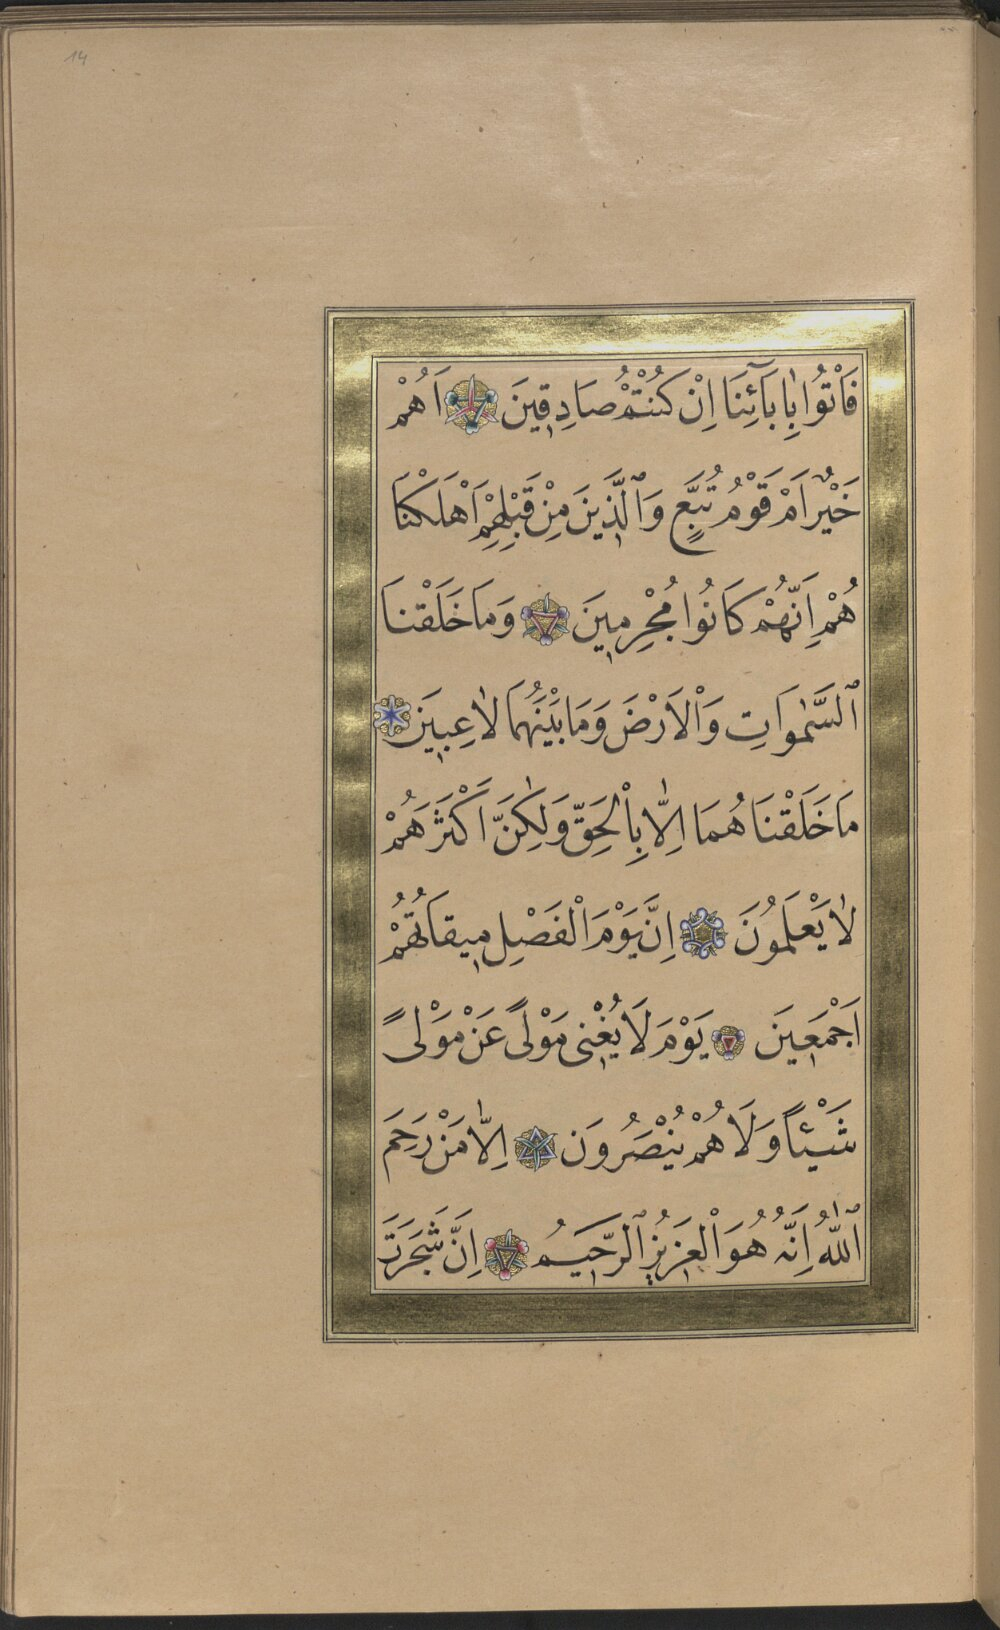 14
فَأْتُوا بِاٰبَآئِنَا اِنْ كُنْتُمْ صَادِقِينَ اَهُمْ
خَيْرٌ اَمْ قَوْمُ تُبَّعٍ وَٱلَّذِينَ مِنْ قَبْلِهِمْ اَهْلَكْنَا
هُمْ اِنَّهُمْ كَانُوا مُجْرِمِينَ وَمَا خَلَقْنَا
ٱلسَّمٰوَاتِ وَالْاَرْضَ وَمَا بَيْنَهُمَا لاٰعِبِينَ
مَا خَلَقْنَاهُمَا اِلاّٰ بِالْحَقِّ وَلٰكِنَّ اَكْثَرَهُمْ
لاٰ يَعْلَمُونَ اِنَّ يَوْمَ الْفَصْلِ مِيقَاتُهُمْ
اَجْمَعِينَ يَوْمَ لَا يُغْنِى مَوْلًى عَنْ مَوْلًى
شَيْئًا وَلَا هُمْ يُنْصَرُونَ اِلاّٰ مَنْ رَحِمَ
ٱللّٰهُ اِنَّهُ هُوَ الْعَزِيزُ ٱلرَّحِيمُ اِنَّ شَجَرَتَ